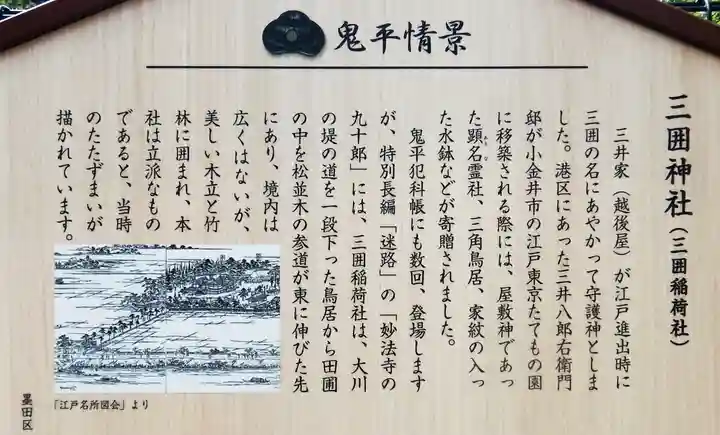 鬼平情景
三囲神社(三囲稲荷社)
三井家(越後屋)が江戸進出時に
三囲の名にあやかって守護神としま
した。港区にあった三井八郎右衛門
邸が小金井市の江戸東京たてもの園
に移築される際には、屋敷神であっ
た顕名霊社、三角鳥居、家紋の入っ
た水鉢などが寄贈されました。
鬼平犯科帳にも数回、登場します
が、特別長編「迷路」の「妙法寺の
九十郎」には、三囲稲荷社は、大川
の堤の道を一段下った鳥居から田圃
の中を松並木の参道が東に伸びた先
にあり、境内は
広くはないが、
美しい木立と竹
林に囲まれ、本
社は立派なもの
であると、当時
のたたずまいが
描かれています。
「江戸名所図会」より
墨田区